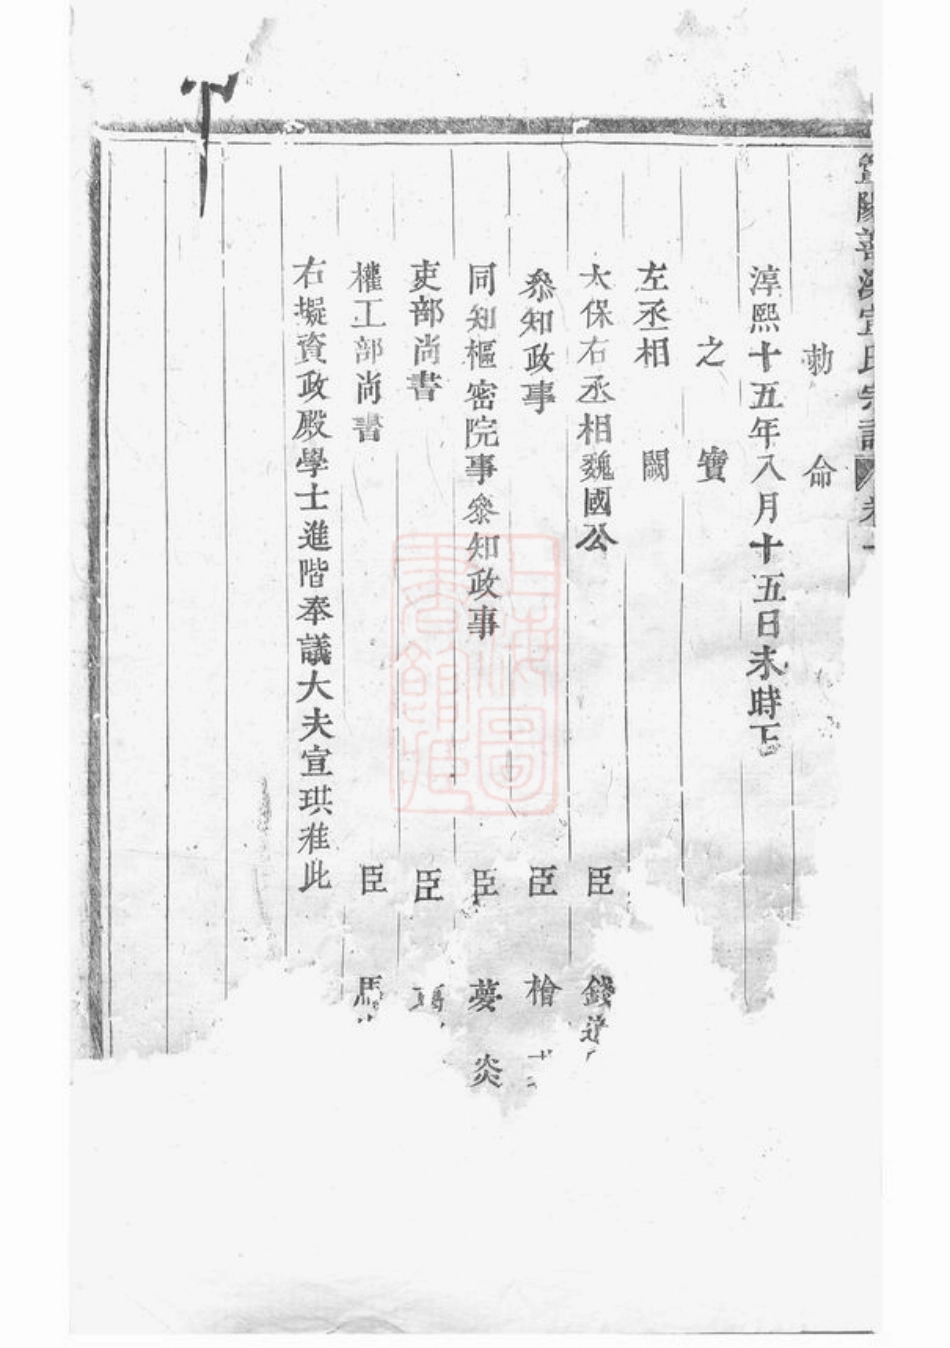 陽善溪宣氏宗譜 卷一
勅命
淳熙十五年八月十五日未時下
之寶
左丞相 闕
太保右丞相魏國公 臣 錢
叅知政事 臣 檜
同知樞密院事叅知政事 臣 夢炎
吏部尚書 臣
權工部尚書 臣 馬
右擬資政殿學士進階奉議大夫宣珙准此
上海圖
書館藏